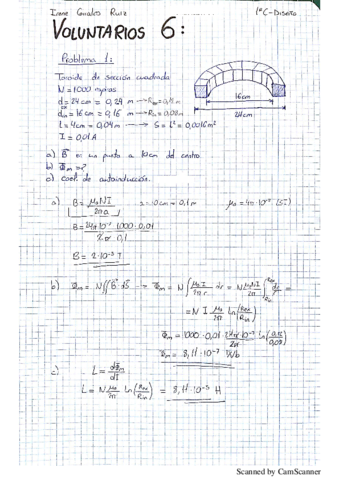 Irene Guiales Ruiz
1ºC-Diseño
VOLUNTARIOS 6:
Problema 1:
Toroide de sección cuadrada
N = 1000 espiras
d = 24cm = 0,24 m → Rex = 0,12 m
din = 16cm = 0,16 m → Rin = 0,08 m
L = 4cm = 0,04m → S = L² = 0,0016m²
I = 0,01A
16cm
24cm
a) B en un punto a 10cm del centro
b) Φm = ?
c) coef. de autoinducción.
a) B = μ₀NI / 2πa   a = 10cm → 0,1m   μ₀ = 4π·10⁻⁷ (SI)
B = 4π·10⁻⁷·1000·0,01 / 2π·0,1
B = 2·10⁻⁵ T
b) Φm = N∬B·dS → Φm = N∫ μ₀I / 2πr dr = N μ₀I / 2π ∫ dr / r =
= N I μ₀ / 2π Ln(Rex / Rin)
Φm = 1000·0,01 · 4π·10⁻⁷ / 2π Ln(0,12 / 0,08)
Φm = 8,11·10⁻⁷ Wb
c) L = dΦm / dI
L = N μ₀ / 2π Ln(Rex / Rin) = 8,11·10⁻⁵ H
Scanned by CamScanner